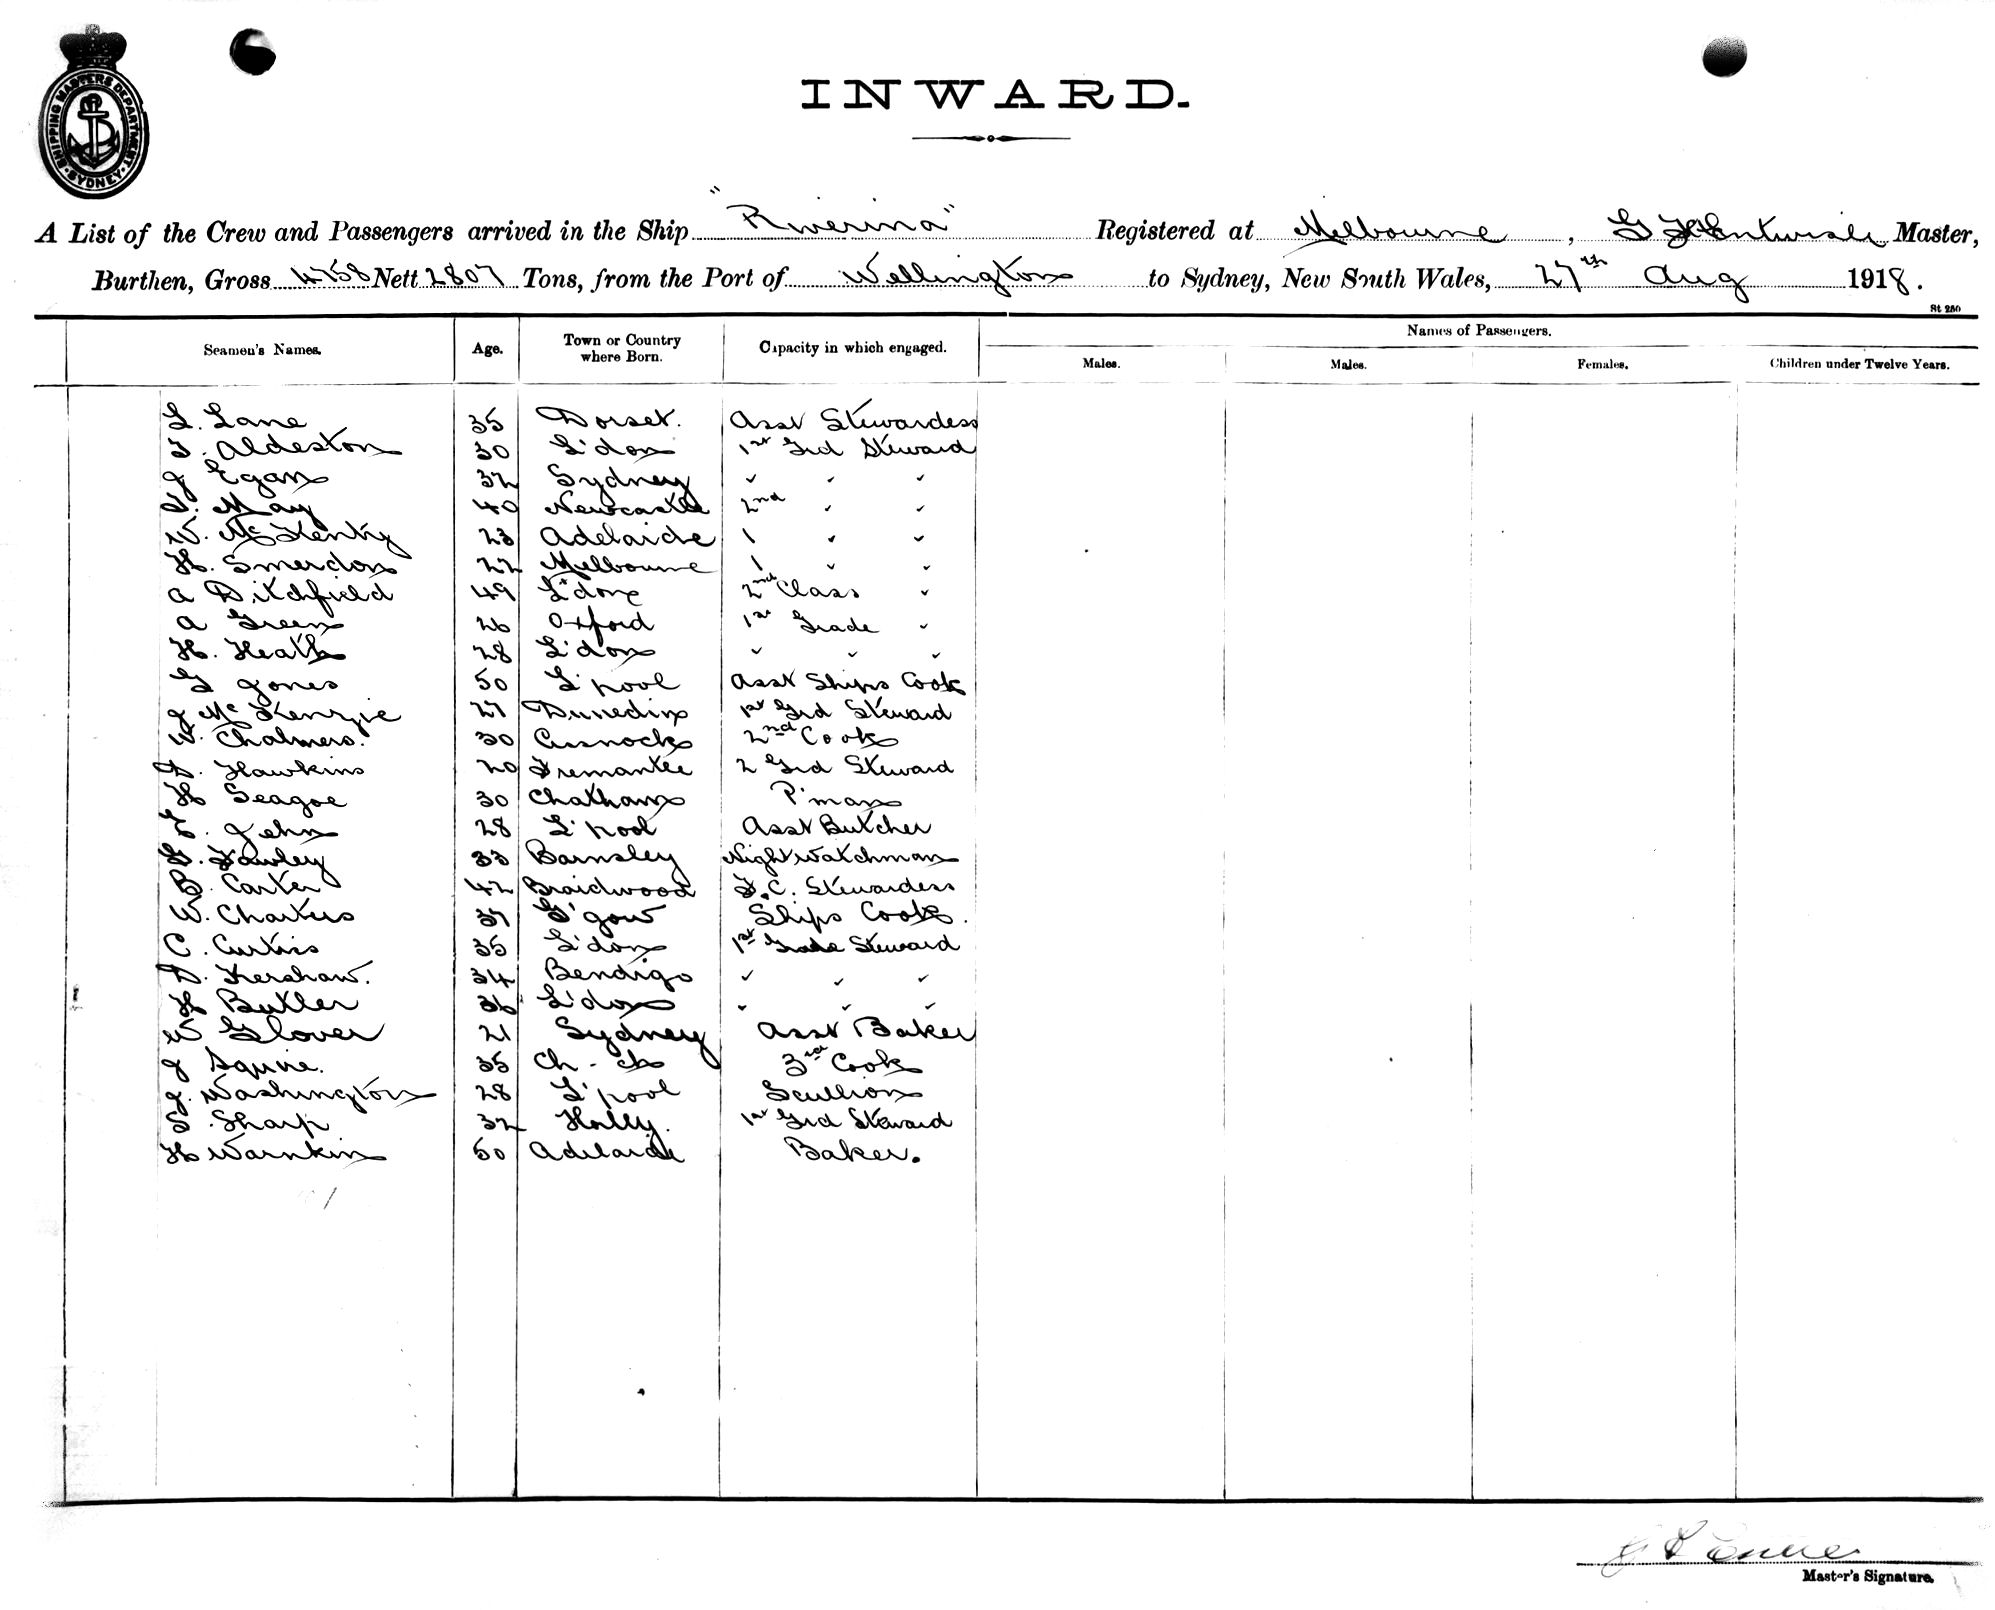 SHIPPING MASTERS DEPARTMENT · SYDNEY ·
INWARD.
A List of the Crew and Passengers arrived in the Ship "Riverina" Registered at Melbourne, Master,
Burthen, Gross 4758 Nett 2807 Tons, from the Port of Wellington to Sydney, New South Wales, 27th Aug 1918.
St 280
Seamen's Names. Age. Town or Country where Born. Capacity in which engaged. Names of Passengers.
Males. Males. Females. Children under Twelve Years.
L. Lane 35 Dorset. Asst Stewardess
T. Aldeston 30 L'don 1st Grd Steward
J Egan 32 Sydney " " "
May 40 Newcastle 2nd " "
W. 23 Adelaide 1 " "
H. Smerdon 22 Melbourne 1 " "
A Ditchfield 49 L'don 2nd Class "
A Green 26 Oxford 1st Grade "
H. Heath 28 L'don " " "
G Jones 50 L'pool Asst Ships Cook
J McKenzie 27 Dunedin 1st Grd Steward
W. Chalmers. 30 Cessnock 2nd Cook
D. Hawkins 20 Fremantle 2 Grd Steward
H Seagoe 30 Chatham P'man
E. John 28 L'pool Asst Butcher
Fawley 33 Barnsley Night Watchman
B. Carter 42 Braidwood F.C. Stewardess
W. Charters 37 G'gow Ships Cook.
C. Curtiss 35 L'don 1st Grade Steward
D. Kershaw. 34 Bendigo " " "
H Butler 36 L'don " " "
W Glover 21 Sydney Asst Baker
J Squire. 35 Ch-ch 3rd Cook
J. Washington 28 L'pool Scullion
S. Sharp 32 1st Grd Steward
H Warnkin 50 Adelaide Baker.
Master's Signature.